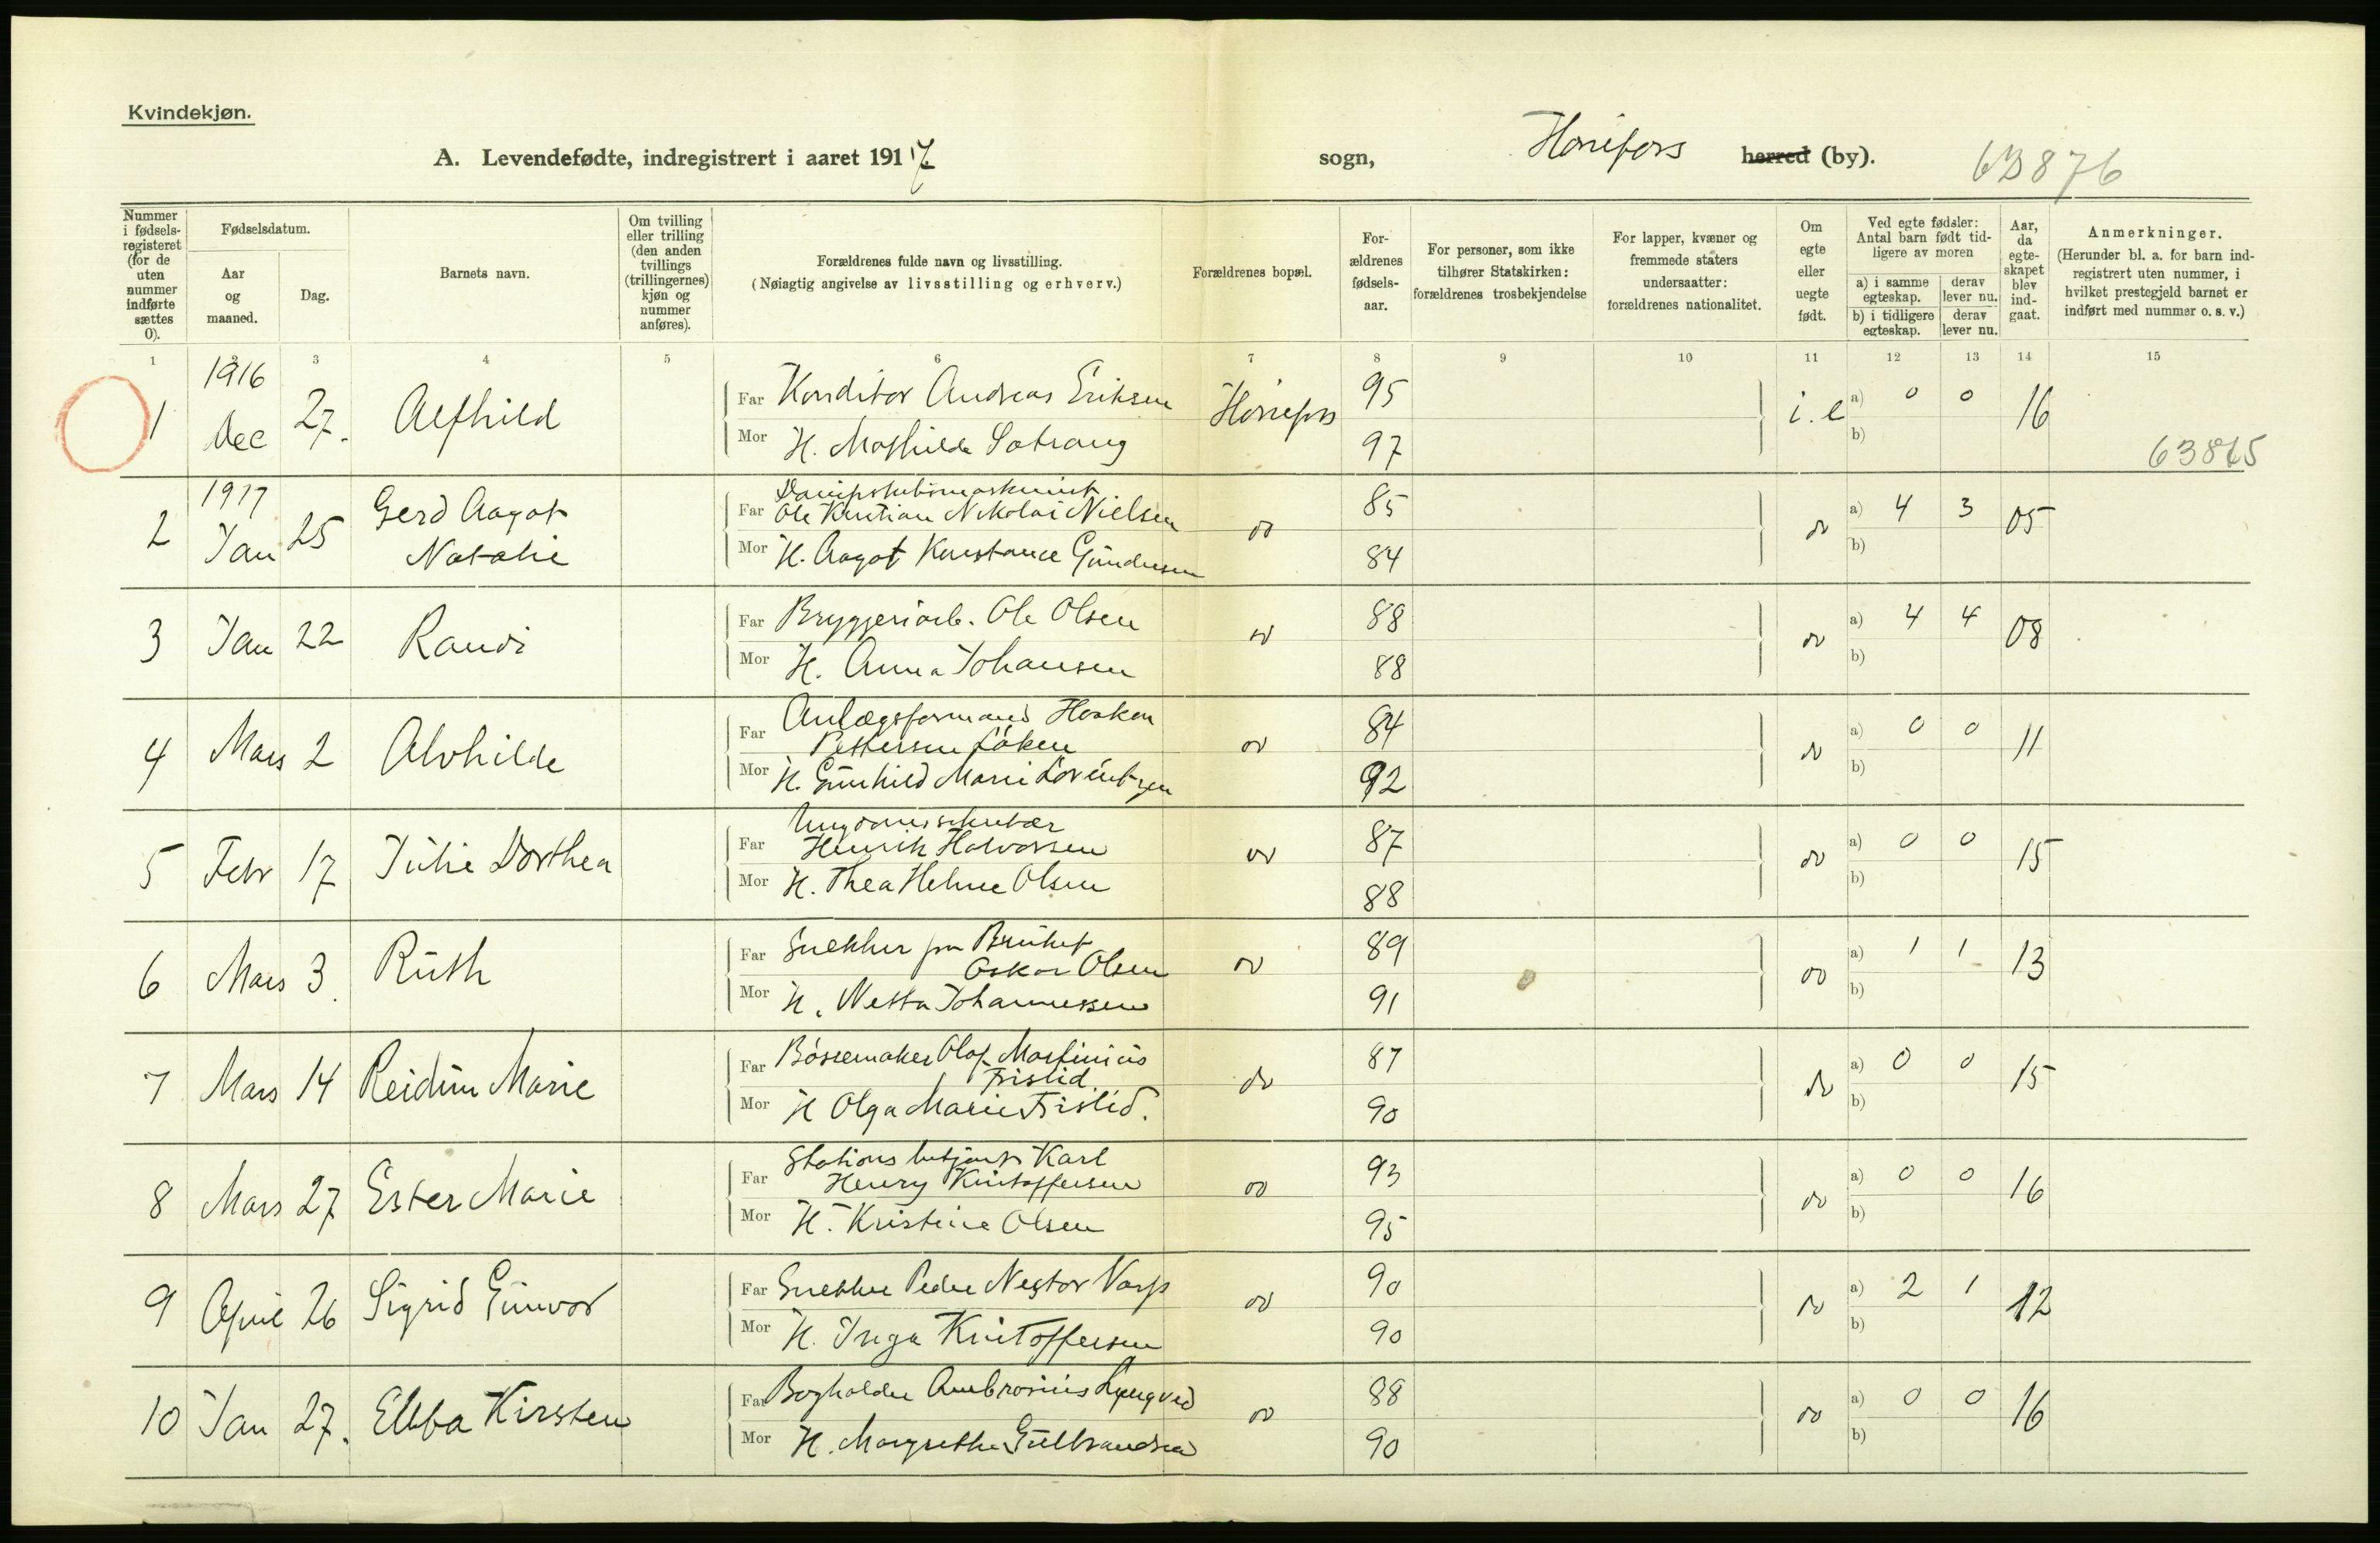 Kvindekjøn.
A. Levendefødte, indregistrert i aaret 1917. sogn, Hønefoss herred (by). 63876
Nummer i fødsels-registeret (for de uten nummer indførte sættes 0).
Fødselsdatum.
Aar og maaned.
Dag.
Barnets navn.
Om tvilling eller trilling (den anden tvillings (trillingernes) kjøn og nummer anføres).
Forældrenes fulde navn og livsstilling.
(Nøiagtig angivelse av livsstilling og erhverv.)
Forældrenes bopæl.
For-ældrenes fødsels-aar.
For personer, som ikke tilhører Statskirken: forældrenes trosbekjendelse
For lapper, kvæner og fremmede staters undersaatter: forældrenes nationalitet.
Om egte eller uegte født.
Ved egte fødsler: Antal barn født tid-ligere av moren
a) i samme egteskap. derav lever nu.
b) i tidligere egteskap. derav lever nu.
Aar, da egte-skapet blev ind-gaat.
Anmerkninger.
(Herunder bl. a. for barn ind-registrert uten nummer, i hvilket prestegjeld barnet er indført med nummer o. s. v.)
1 3 4 5 6 7 8 9 10 11 12 13 14 15
1916
1 Dec 27. Alfhild
Far Konditor Andreas Eriksen Hønefoss 95 i. e a) 0 0 16
Mor H. Mathilde Sætrang 97 b)
63865
1917
2 Jan 25 Gerd Aagot Natalie
Far Ole Kristian Nikolai Nielsen do 85 do a) 4 3 05
Mor H. Aagot Konstance Gundersen 84 b)
3 Jan 22 Randi
Far Bryggeriarb. Ole Olsen do 88 do a) 4 4 08
Mor H. Anna Johansen 88 b)
4 Mars 2 Alvhilde
Far Anlægsformand Haakon
Pettersen Løken do 84 do a) 0 0 11
Mor H. Gunhild Marie Lorentzen 92 b)
5 Febr 17 Julie Dorthea
Far Henrik Halvorsen do 87 do a) 0 0 15
Mor H. Thea Helene Olsen 88 b)
6 Mars 3. Ruth
Far Snekker paa Bruket
Oskar Olsen do 89 do a) 1 1 13
Mor H. Netta Johannessen 91 b)
7 Mars 14 Reidun Marie
Far Bøssemaker Olaf Martinius
Fristid do 87 do a) 0 0 15
Mor H Olga Marie Fristid. 90 b)
8 Mars 27 Ester Marie
Far Stationsbetjent Karl
Henry Kristoffersen do 93 do a) 0 0 16
Mor H. Kristine Olsen 95 b)
9 April 26 Sigrid Gunvor
Far Snekker Peder Nestor Varp do 90 do a) 2 1 12
Mor H. Inga Kristoffersen 90 b)
10 Jan 27. Ebba Kirsten
Far Bogholder Ambrosius Lyngved do 88 do a) 0 0 16
Mor H. Margrethe Gulbrandsen 90 b)